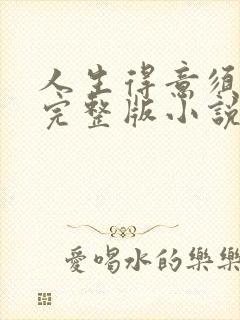 人生得意須
完整版小說
愛喝水的樂樂